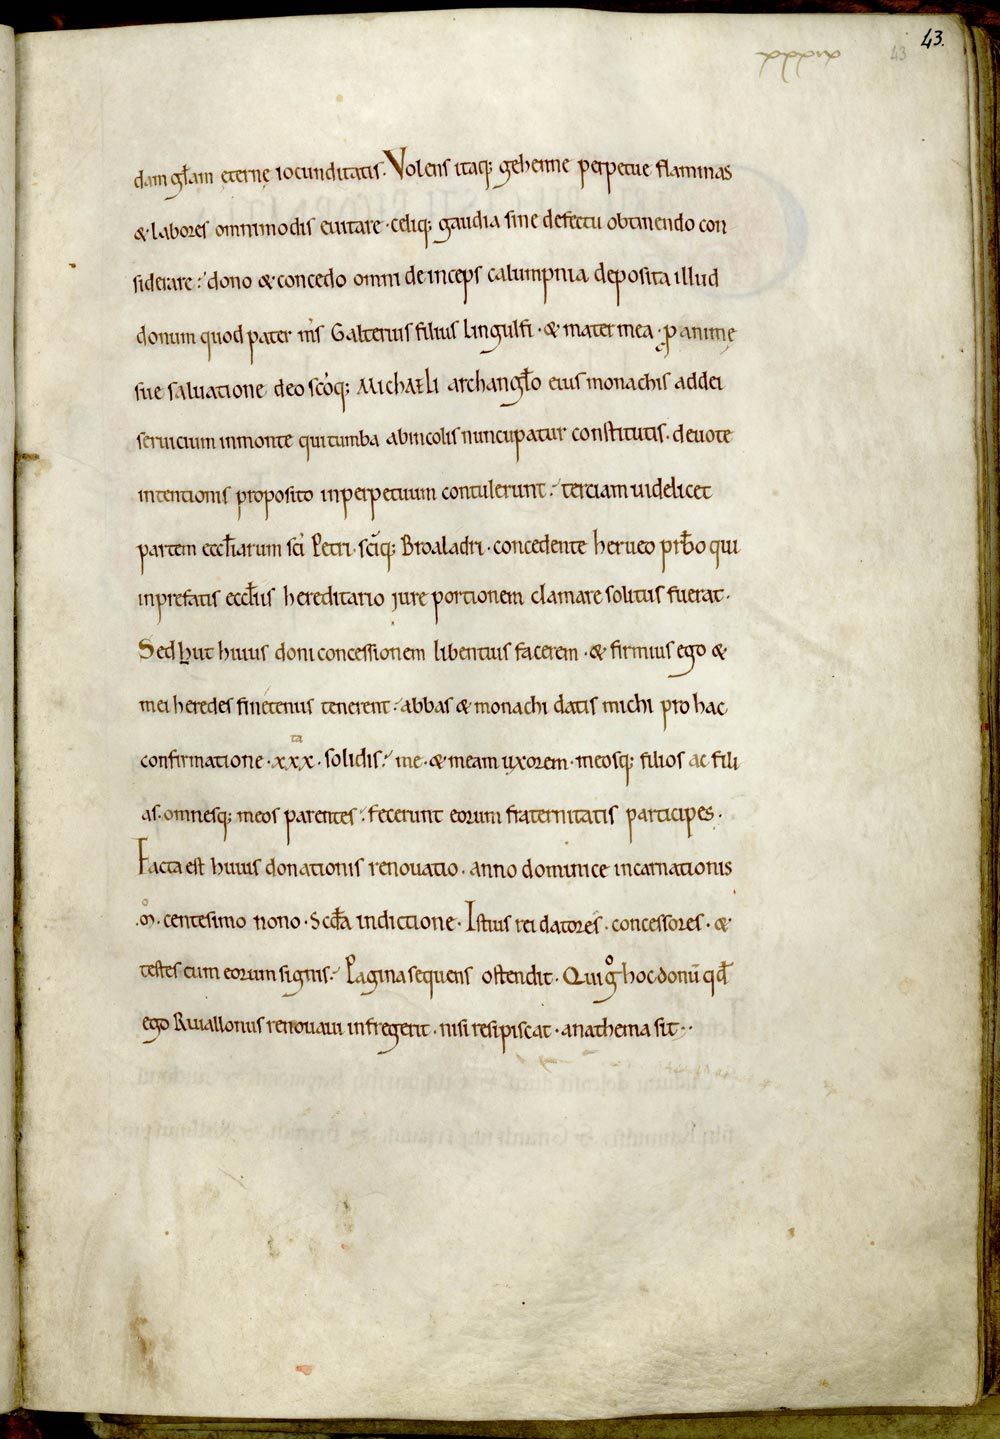 43.
xxxix 43
dam gl̄am ęternę iocunditatis. Volens itaq; gehenne perpetue flammas
& labores omnimodis euitare · celiq; gaudia sine defectu obtinendo con
siderare : dono & concedo omni deinceps calumpnia deposita illud
donum quod pater m̄s Galterius filius lingulfi · & mater mea · ꝓ animę
sue saluatione deo sc̄oq; Michaeli archangl̄o eius monachis ad dei
seruicium in monte qui tumba ab incolis nuncupatur constitutis. deuote
intentionis proposito in perpetuum contulerunt : terciam uidelicet
partem eccl̄iarum sc̄i Petri · sc̄iq; Broaladri · concedente herueo pr̄bo qui
in prefatis eccl̄iis hereditario jure portionem clamare solitus fuerat ·
Sed hut huius doni concessionem libentius facerem · & firmius ego &
mei heredes finetenus tenerent : abbas & monachi datis michi pro hac
confirmatione · xxxta · solidis : me · & meam uxorem · meosq; filios ac fili
as · omnesq; meos parentes : fecerunt eorum fraternitatis participes ·
Facta est huius donationis renouatio · anno dominice incarnationis
· mͦ · centesimo nono · Scd̄a indictione · Istius rei datores · concessores · &
testes cum eorum signis : Pagina sequens ostendit · Qui gͦ hoc donū qd̄
ego Riuallonus renouaui infregerit · nisi resipiscat · anathema sit ··